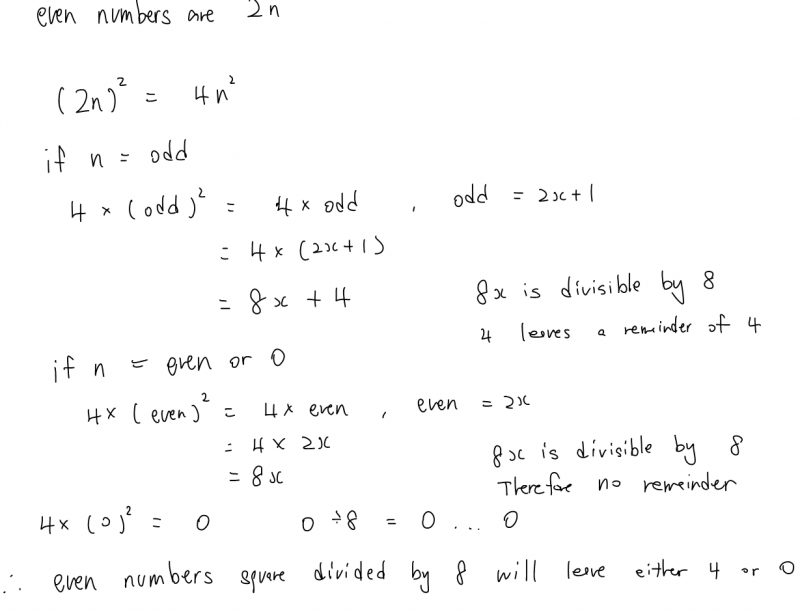 even numbers are 2n
(2n)² = 4n²
if n = odd
4 × (odd)² = 4 × odd , odd = 2x+1
= 4 × (2x+1)
= 8x + 4
8x is divisible by 8
4 leaves a reminder of 4
if n = even or 0
4× (even)² = 4× even , even = 2x
= 4 × 2x
= 8x
8x is divisible by 8
Therefore no remeinder
4× (0)² = 0 0 ÷8 = 0 ... 0
∴ even numbers square divided by 8 will leave either 4 or 0